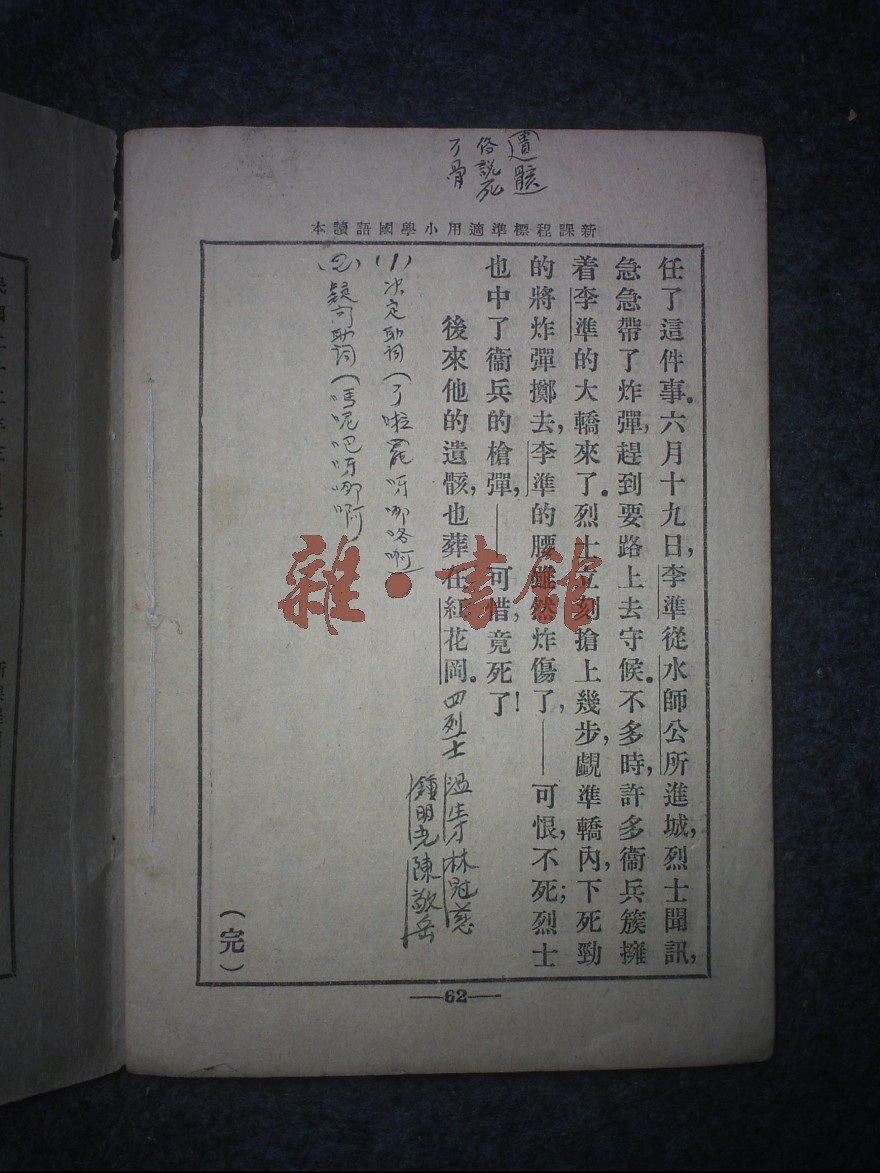 遺骸
俗説死
了骨
新課程標準適用小學國語讀本
任了這件事。六月十九日，李準從水師公所進城，烈士聞訊，
急急帶了炸彈，趕到要路上去守候。不多時，許多衞兵簇擁
着李準的大轎來了。烈士立刻搶上幾步，覷準轎內，下死勁
的將炸彈擲去，李準的腰雖然炸傷了，——可恨，不死；烈士
也中了衞兵的槍彈，——可惜，竟死了！
後來他的遺骸，也葬在紅花岡。四烈士
溫生才林冠慈
鍾明光陳敬岳
(1)決定助詞(了啦罷呀哪咯啊
(2)疑问助詞(嗎呢吧呀哪啊
(完)
—62—
雜·書館